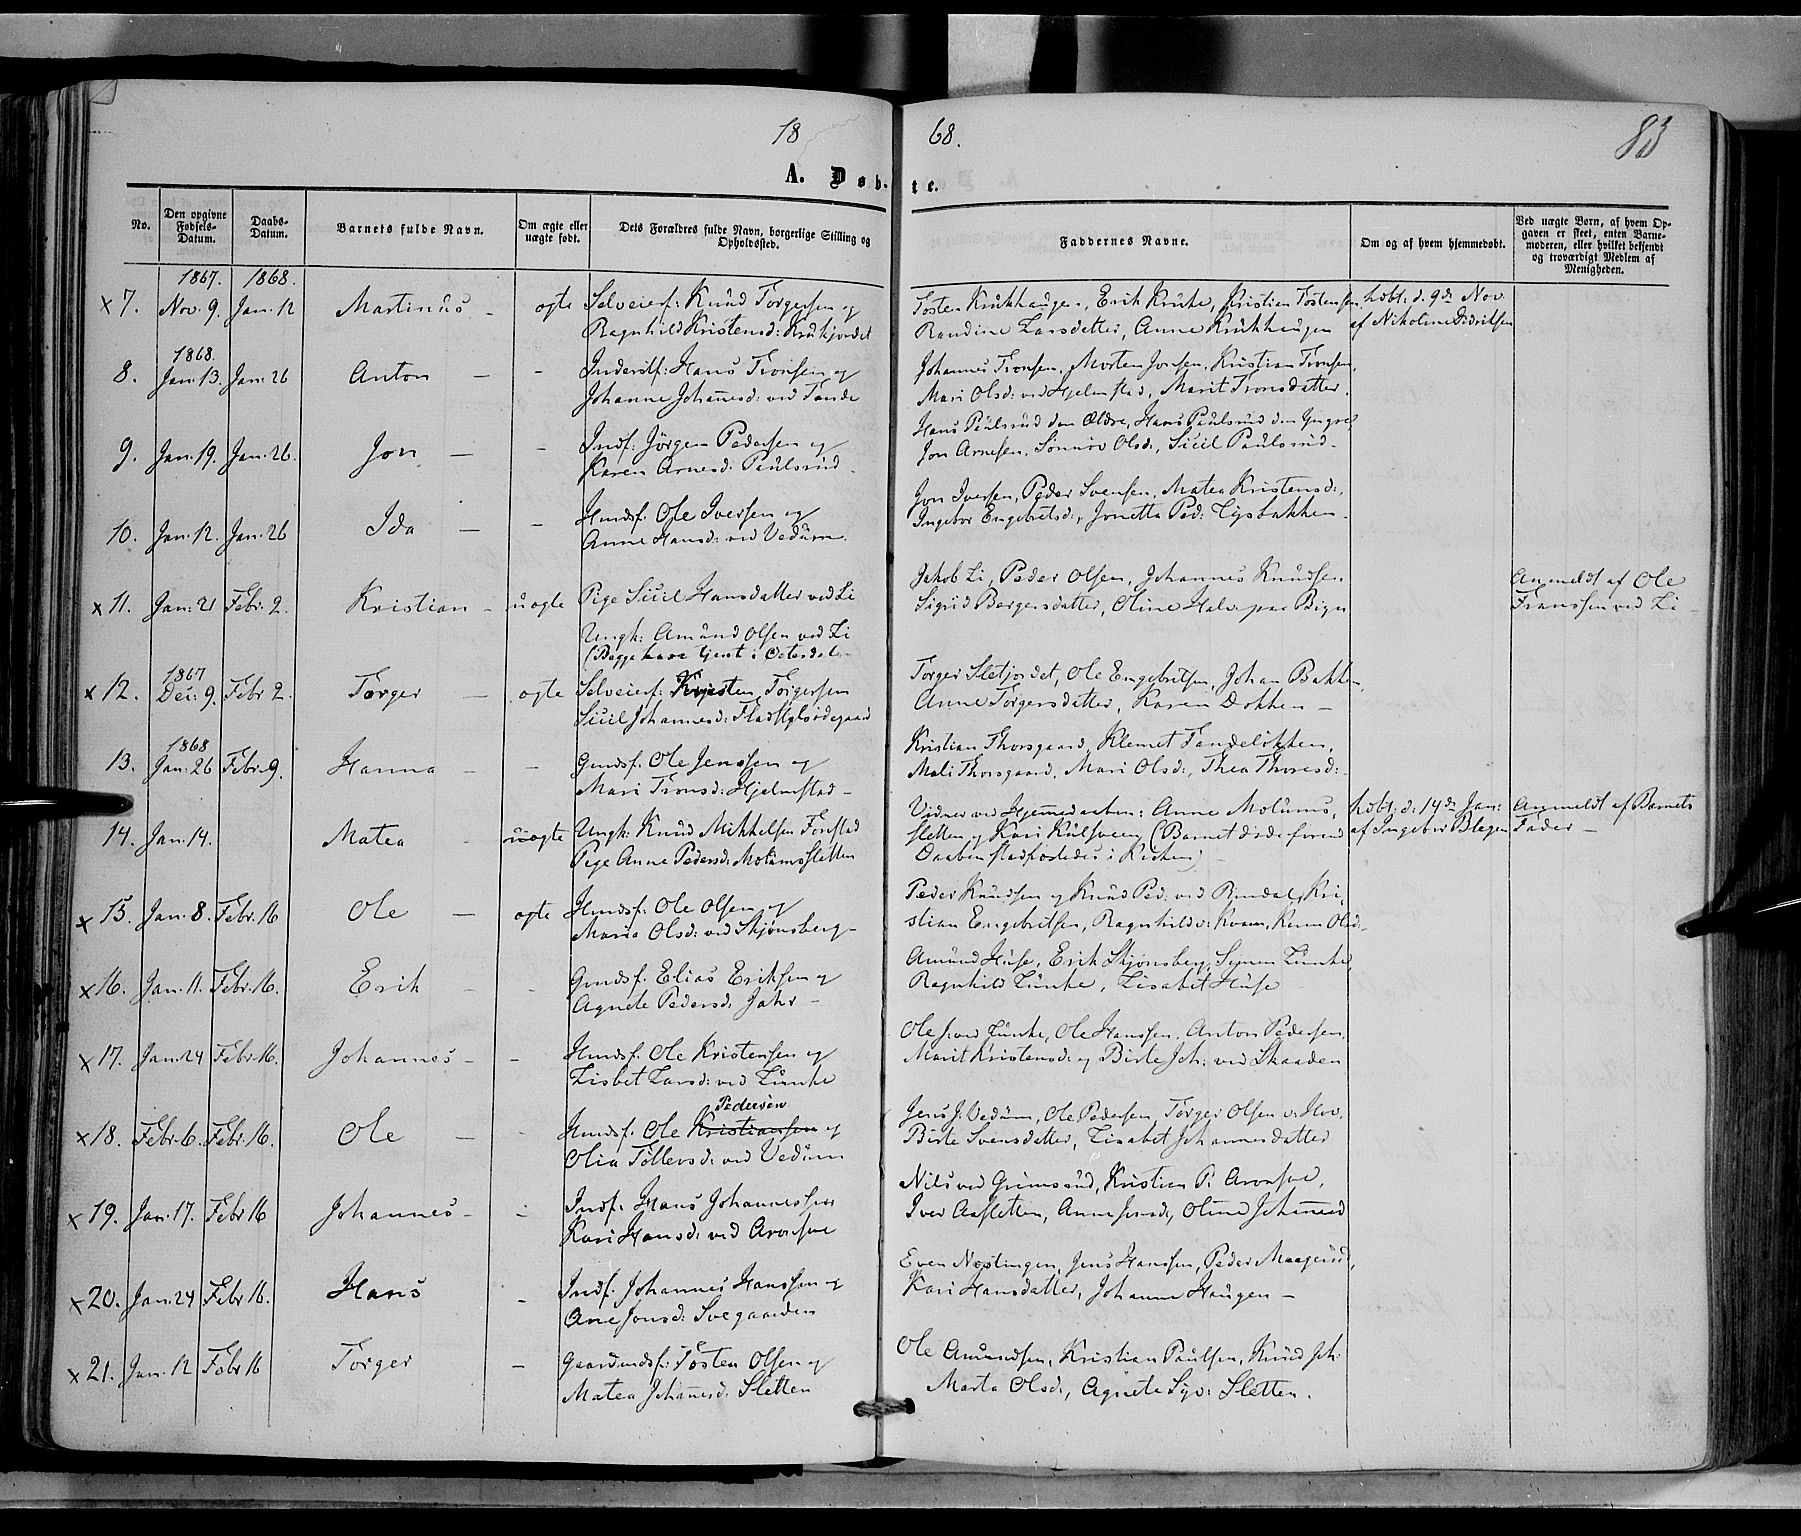 18 68.
83
A. Døb- te.
No.
Den opgivne Fødsels-Datum.
Daabs-Datum.
Barnets fulde Navn.
Om ægte eller uægte født.
Dets Forældres fulde Navn, borgerlige Stilling og Opholdssted.
Faddernes Navne.
Om og af hvem hjemmedøbt.
Ved uægte Børn, af hvem Opgaven er skeet, enten Barnemoderen, eller hvilket bekjendt og troværdigt Medlem af Menigheden.
1867. 1868.
x 7. Nov. 9. Jan. 12 Martinus - ægte Selveierf: Knud Torgersen og Tosten Krukhaugen, Erik Kruke, Kristian Tostensen hdbt: d. 9de Nov.
Ragnhild Kristensd: Krukjordet Randine Larsdatter, Anne Krukhaugen af Nikoline Didriksen
1868.
8. Jan: 13. Jan: 26 Anton - - Inderstf: Hans Tronsen og Johannes Tronsen, Morten Jonsen, Kristian Tronsen,
Johanne Johannesd: ved Tande Mari Olsd: ved Hjelmstad, Marit Tronsdatter.
Hans Paulsrud den Ældre, Hans Paulsrud den Yngre
9. Jan: 19. Jan: 26. Jon - - Indf: Jörgen Pedersen og Jon Arnesen, Sönnöv Olsd:, Sicil Paulsrud -
Karen Arnesd: Paulsrud -
Jon Iversen, Peder Svensen, Matea Kristensd:,
10. Jan: 12. Jan: 26 Ida - - Husmdsf: Ole Iversen og Ingebor Engebretsd:, Jonetta Ped: Lysbakken -
Anne Hansd: ved Vedum.
Jakob Li, Peder Olsen, Johannes Knudsen Anmeldt af Ole
x 11. Jan: 21 Febr: 2. Kristian - uægte Pige Sicil Hansdatter ved Li Sigrid Bergersdatter, Oline Halv- paa Bign Franssen ved Li -
Ungk: Amund Olsen ved Li
(Begge have tjent i Østerdal -
1867
x 12. Dec: 9. Febr 2. Torger - ægte Selveierf: Kristen Torgersen Torger Sletjordet, Ole Engebretsen, Johan Bakken,
Sicil Johannesd: Anne Torgersdatter, Karen Dokken -
1868
13. Jan: 26 Febr: 9. Hanna - - Gmdsf. Ole Jenssen og Kristian Thorsgaard, Klemet Tandeløkken,
Mari Tronsd: Hjelmstad - Mali Thorsgaard, Mari Olsd:, Thea Thoresd: -
14. Jan. 14. Matea - uægte Ungk: Knud Mikkelsen Forstad Vidner ved Hjemmedaaben: Anne Molums- hdbt: d: 14de Jan: Anmeldt af Barnets
Pige Anne Pedersd: Molumssletten sletten og Kari Kulsveen (Barnet døde førend af Ingebor Blegen Fader -
Daaben stadfæstedes i Kirken) -
x 15. Jan: 8. Febr. 16 Ole - ægte Husmdsf: Ole Olsen og Peder Knudsen og Knud Ped: ved Rindal, Kri-
Maria Olsd: ved Skjønsberg - stian Engebretsen, Ragnhild v: Kvarn, Karen Olsd: -
x 16. Jan. 11. Febr. 16. Erik - - Gmdsf. Elias Eriksen og Amund Huse, Erik Skjønsberg, Simen Lunke,
Agnete Pedersd: Jahr - Ragnhild Lunke, Lisabet Huse
x 17. Jan. 24 Febr. 16. Johannes - - Husmdsf. Ole Kristensen og Ole J: ved Lunke, Ole Hanssen, Anton Pedersen,
Lisbet Larsd: ved Lunke Marit Kristensd: og Birte Joh: ved Skaaden
Pedersen
x 18. Febr. 6. Febr. 16. Ole - - Husmdsf. Ole Kristiansen og Jens J. Vedum, Ole Pedersen, Torger Olsen v: Hov,
Olia Tollevsd: ved Vedum Birte Svensdatter, Lisabet Johannesdatter
x 19. Jan: 17. Febr 16 Johannes - - Indf. Hans Johannessen Nils ved Grimsrud, Kristian P: Aronsve,
Kari Hansd: ved Aronsve Iver Aasletten, Anne Jensd:, Oline Johannesd
x 20. Jan: 24 Febr 16. Hans - Indf. Johannes Hanssen og Even Nestingen, Jens Hanssen, Peder Maagerud,
Ane Jonsd: Svegaarden Kari Hansdatter, Johanne Haugen -
x 21. Jan. 12 Febr 16 Torger - Gaardmdsf: Tosten Olsen og Ole Amundsen, Kristian Paulsen, Knud Joh:
Matea Johannesd: Sletten Marta Olsd:, Agnete Syv: Sletten.